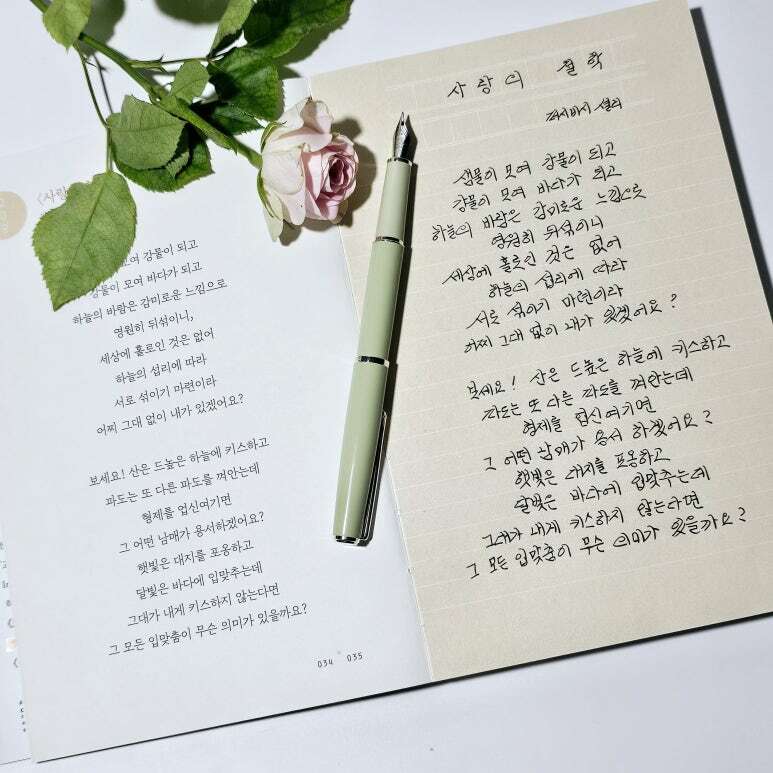 〈사랑
모여 강물이 되고
강물이 모여 바다가 되고
하늘의 바람은 감미로운 느낌으로
영원히 뒤섞이니,
세상에 홀로인 것은 없어
하늘의 섭리에 따라
서로 섞이기 마련이라
어찌 그대 없이 내가 있겠어요?
보세요! 산은 드높은 하늘에 키스하고
파도는 또 다른 파도를 껴안는데
형제를 업신여기면
그 어떤 남매가 용서하겠어요?
햇빛은 대지를 포옹하고
달빛은 바다에 입맞추는데
그대가 내게 키스하지 않는다면
그 모든 입맞춤이 무슨 의미가 있을까요?
034 035
사랑의 철학
퍼시비시 셸리
샘물이 모여 강물이 되고
강물이 모여 바다가 되고
하늘의 바람은 감미로운 느낌으로
영원히 뒤섞이니
세상에 홀로인 것은 없어
하늘의 섭리에 따라
서로 섞이기 마련이라
어찌 그대 없이 내가 있겠어요?
보세요! 산은 드높은 하늘에 키스하고
파도는 또 다른 파도를 껴안는데
형제를 업신여기면
그 어떤 남매가 용서 하겠어요?
햇빛은 대지를 포옹하고
달빛은 바다에 입맞추는데
그대가 내게 키스하지 않는다면
그 모든 입맞춤이 무슨 의미가 있을까요?